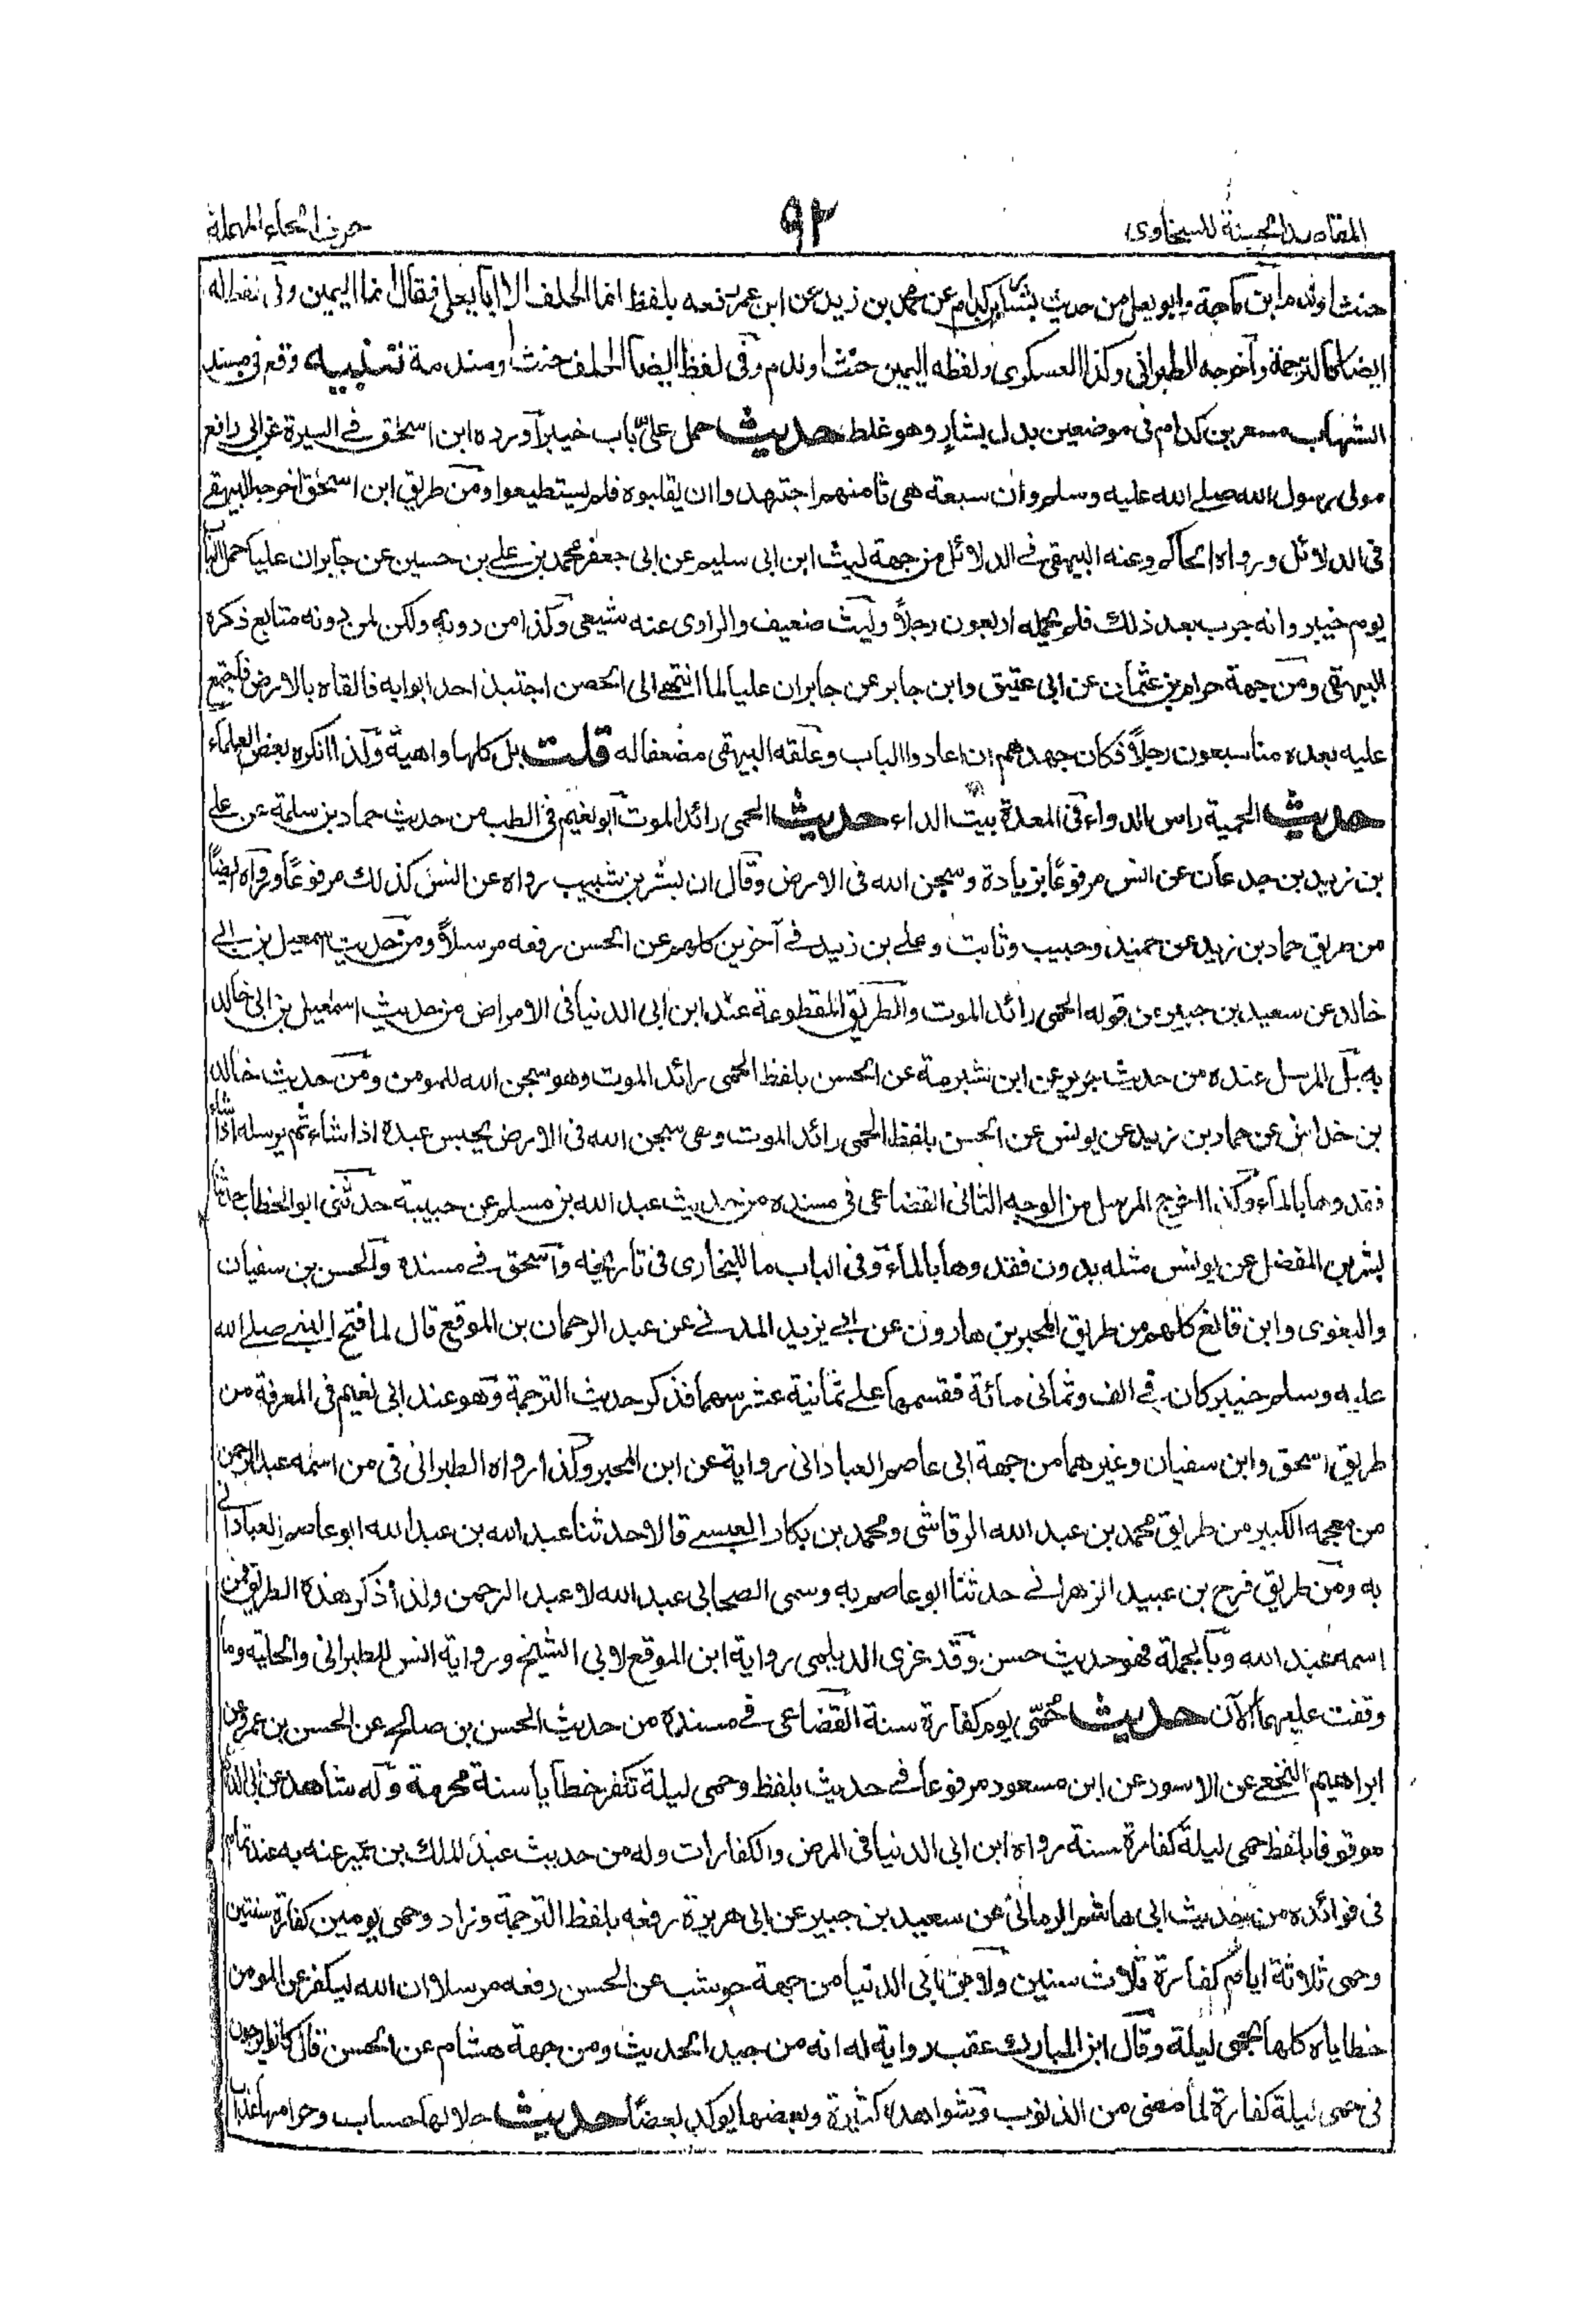 المقاصد الحسنة للسخاوى ٩٢ حرف الحاء المهملة
حنث او ندم ابن ماجة وابو يعلى من حديث بشار بن كدام عن محمد بن زيد عن ابن عمر رفعه بلفظ انما الحلف الا ابا يعلى فقال انما اليمين وفى لفظ له
ايضا كالترجمة وأخرجه الطبرانى وكذا العسكرى ولفظه اليمين حنث او ندم وفى لفظ ايضا الحلف حنث او مندمة تنبيه وقع فى مسند
الشهاب مسعر بن كدام فى موضعين بدل بشار وهو غلط حديث حمل علىّ باب خيبر أورده ابن اسحٰق فے السيرة عن ابى رافع
مولى رسول الله صلے الله عليه وسلم وان سبعة هى ثامنهم اجتهدوا ان يقلبوه فلم يستطيعوا ومن طريق ابن اسحٰق اخرجه البيهقے
فى الدلائل ورواه الحاكم وعنه البيهقى فے الدلائل من جهة ليث ابن ابى سليم عن ابى جعفر محمد بن علے بن حسين عن جابر ان عليا حمل الباب
يوم خيبر وانه جرب بعد ذلك فلم يحمله اربعون رجلاً وليث ضعيف والراوى عنه شيعى وكذا من دونه ولكن لمن دونه متابع ذكره
البيهقى ومن جهة حرام بن عثمان عن ابى عتيق وابن جابر عن جابر ان عليا لما انتهے الى الحصن اجتبذ احد ابوابه فالقاه بالارض فاجتمع
عليه بعده منا سبعون رجلاً فكان جهدهم ان اعادوا الباب وعلقه البيهقى مضعفا له قلت بل كلها واهية وكذا انكره بعض العلماء
حديث الحمية راس الدواء فى المعدة بيت الداء حديث الحمى رائد الموت ابو نعيم فى الطب من حديث حماد بن سلمة عن علے
بن زيد بن جدعان عن انس مرفوعًا بزيادة وسجن الله فى الارض وقال ان بشر بن شبيب رواه عن انس كذلك مرفوعًا ورواه ايضًا
من طريق حماد بن زيد عن حميد وحبيب وثابت وعلے بن زيد فے آخرين كلهم عن الحسن رفعه مرسلاً ومن حديث اسمعيل بن ابے
خالد عن سعيد بن جبير من قوله الحمى رائد الموت والطريق المقطوعة عند ابن ابى الدنيا فى الامراض من حديث اسمٰعيل بن ابى خالد
به بل المرسل عنده من حديث جرير عن ابن شبرمة عن الحسن بلفظ الحمى رائد الموت وهو سجن الله للمومن ومن حديث خالد
بن خداش عن حماد بن زيد عن يونس عن الحسن بلفظ الحمى رائد الموت وهى سجن الله فى الارض يحبس عبده اذا شاء ثم يرسله اذا شاء
ففتروها بالماء وكذا اخرج المرسل من الوجه الثانى القضاعى فى مسنده من حديث عبد الله بن مسلم عن حبيبة حدثنى ابو الخطاب
بشر بن المفضل عن يونس مثله بدون فقدوها بالماء وفى الباب ما للبخارى فى تاريخه واسحق فے مسنده والحسن بن سفيان
والبغوى وابن قانع كلهم من طريق المحبر بن هارون عن ابے يزيد المدنے عن عبد الرحمان بن الموقع قال لما فتح النبے صلے الله
عليه وسلم خيبر كان فے الف وثمانى مائة فقسمها علے ثمانية عشر سهما فذكر حديث الترجمة وهو عند ابى نعيم فى المعرفة من
طريق اسحق وابن سفيان وغيرهما من جهة ابى عاصم العبادانى رواية عن ابن المحبر وكذا رواه الطبرانى فى من اسمه عبد الرحمن
من معجمه الكبير من طريق محمد بن عبد الله الرقاشى ومحمد بن بكار العيسے قالا حدثنا عبد الله بن عبد الله ابو عاصم العبادانے
به ومن طريق فرج بن عبيد الزهرانے حدثنا ابو عاصم به وسمى الصحابى عبد الله لا عبد الرحمن ولذا ذكر هذه الطريق فمن
اسمه عبد الله وبالجملة فهو حديث حسن وقد عزى الديلمى رواية ابن الموقع لابى الشيخ ورواية انس للطبرانى والحلية وما
وقفت عليهما الآن حديث حمّى يوم كفارة سنة القضاعى فے مسنده من حديث الحسن بن صالح عن الحسن بن عمرو عن
ابراهيم النخعے عن الاسود عن ابن مسعود مرفوعا فے حديث بلفظ وحمى ليلة تكفر خطايا سنة مجرمة وله شاهد عن ابى الدرداء
موقوفا بلفظ حمى ليلة كفارة سنة رواه ابن ابى الدنيا فى المرض والكفارات وله من حديث عبد الملك بن عمير عنه به عند تمام
فى فوائده من حديث ابى هاشم الرمانى عن سعيد بن جبير عن ابى هريرة رفعه بلفظ الترجمة وزاد وحمى يومين كفارة سنتين
وحمى ثلاثة ايام كفارة ثلاث سنين ولابن ابى الدنيا من جهة حوشب عن الحسن رفعه مرسلا ان الله ليكفر عن المومن
خطاياه كلها بحمى ليلة وقال ابن المبارك عقب رواية له انه من جيد الحديث ومن جهة هشام عن الحسن قال كانوا يرجون
فى حمى ليلة كفارة لما مضى من الذنوب وشواهده كثيرة وبعضها يوكد بعضًا حديث حلالها حساب وحرامها عذاب